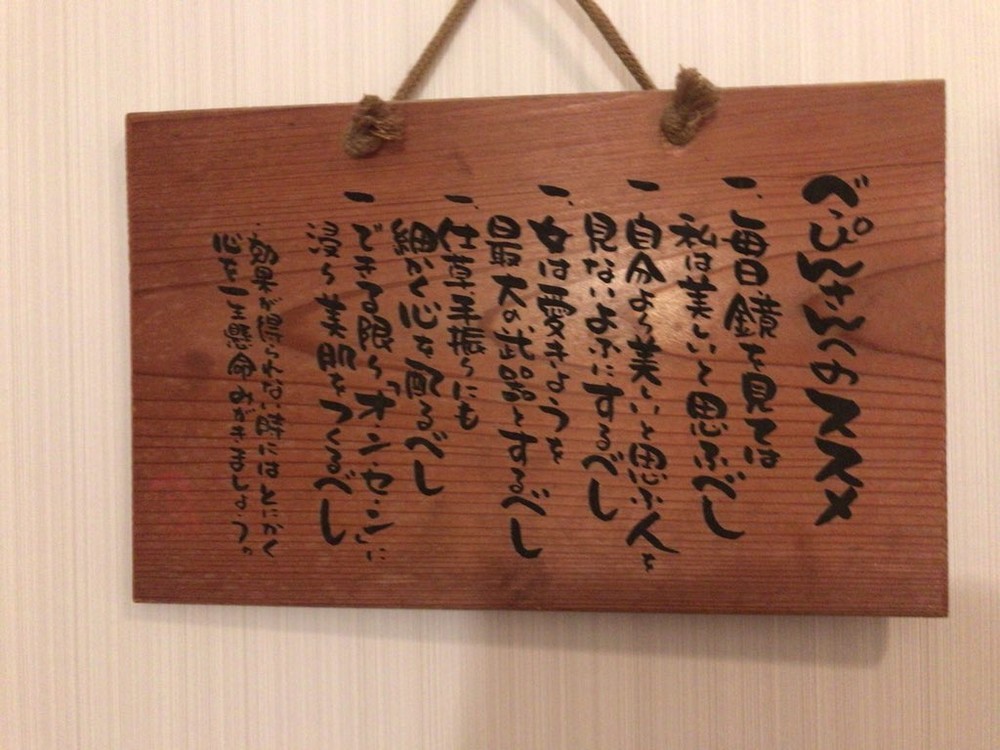 べっぴんさんのススメ
一、毎日鏡を見ては
私は美しいと思ふべし
一、自分より美しいと思ふ人を
見ないよふにするべし
一、女は愛きょうを
最大の武器とするべし
一、仕草手振りにも
細かく心を配るべし
一、できる限り「オンセン」に
浸り美肌をつくるべし
効果が得られない際にはとにかく
心を一生懸命みがきましょう。